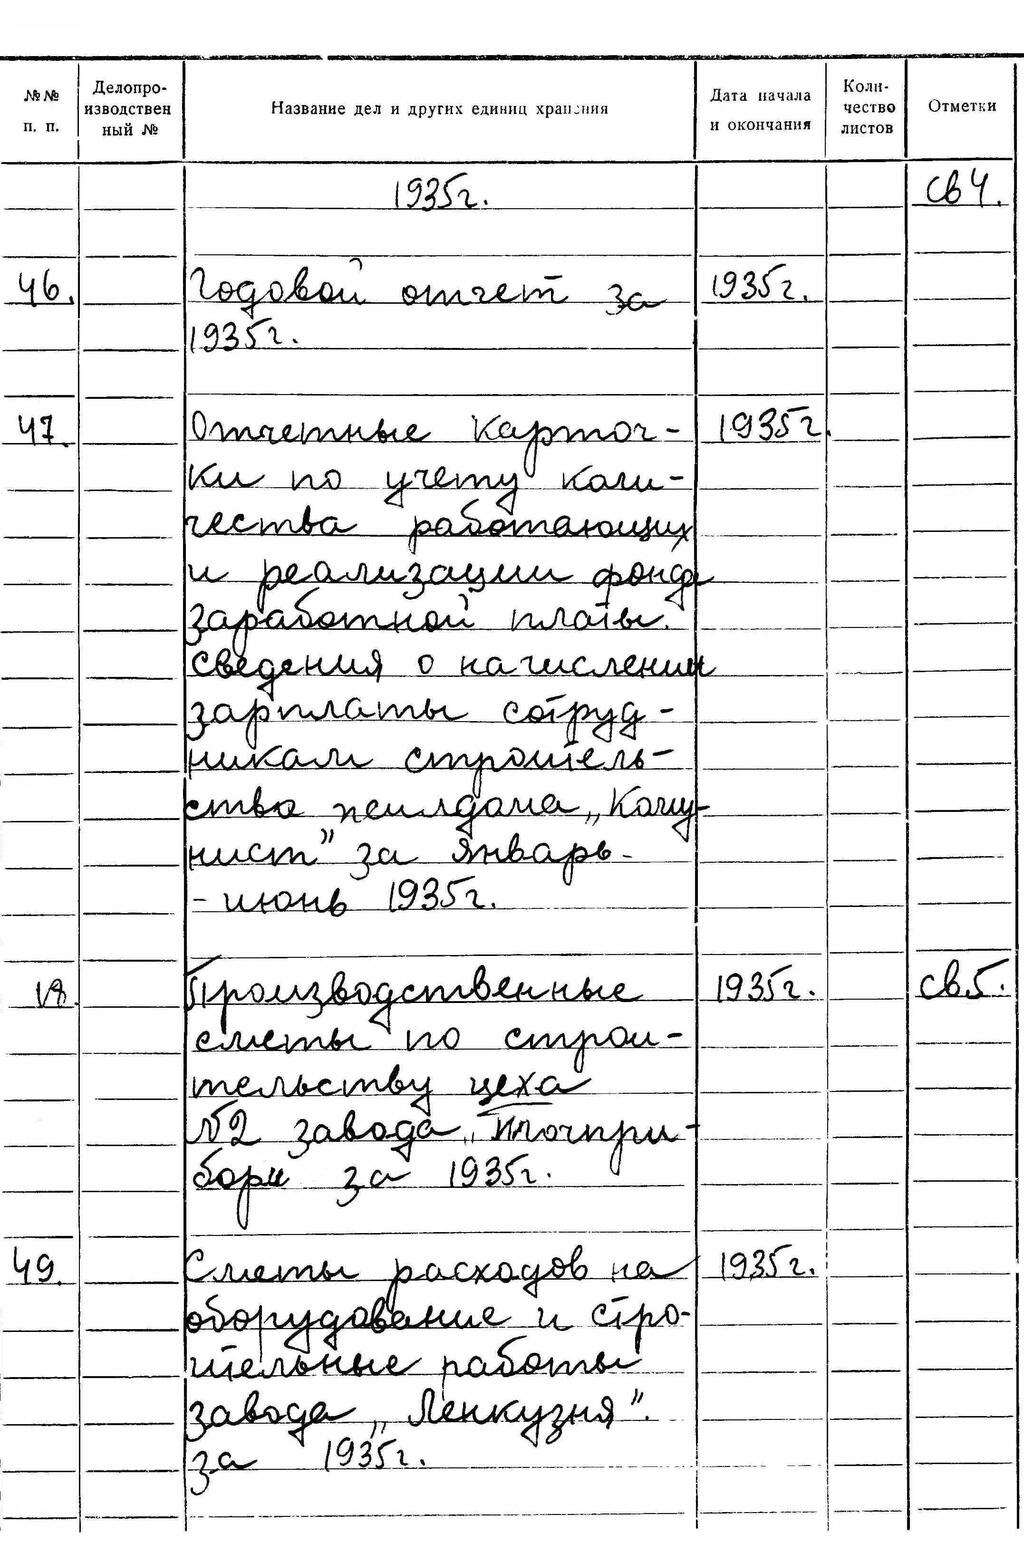 №№ п. п.
Делопро-
изводствен
ный №
Название дел и других единиц хранения
Дата начала
и окончания
Коли-
чество
листов
Отметки
1935г.
св4.
46.
Годовой отчет за
1935г.
1935г.
47.
Отчетные карточ-
ки по учету коли-
чества работающих
и реализации фонда
заработной платы.
сведения о начислении
зарплаты сотруд-
никам строитель-
ства жилдома „Кому-
нист" за январь-
- июнь 1935г.
1935г.
18.
Производственные
сметы по строи-
тельству цеха
№2 завода „Точпри-
бор" за 1935г.
1935г.
св5.
49.
Сметы расходов на
оборудование и стро-
ительные работы
завода „Ленкузня".
за 1935г.
1935г.